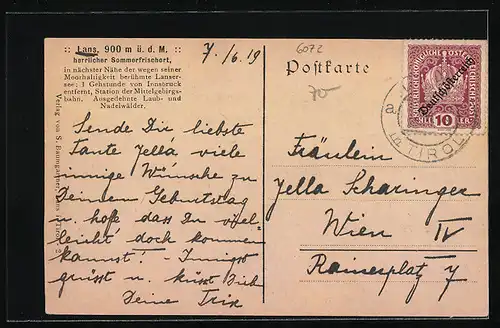 :: Lans, 900 m ü. d. M. ::
herrlicher Sommerfrischort,
in nächster Nähe der wegen seiner
Moorhaltigkeit berühmte Lanser-
see; 1 Gehstunde von Innsbruck
entfernt, Station der Mittelgebirgs-
bahn. Ausgedehnte Laub- und
Nadelwälder.
7./6. 19
6072
Postkarte
70-
Verlag von S. Baumgartner, Lans
Sende Dir liebste
Tante Jella viele
innige Wünsche zu
Deinem Geburtstag
u. hoffe dass Du viel-
leicht doch kommen
kannst! Innigst
grüsst u. küsst Dich
Deine Trix
Deutschösterreich
10 HELLER
a
in TIROL
Fräulein
Jella Scharinger
Wien IV
Rainerplatz 7